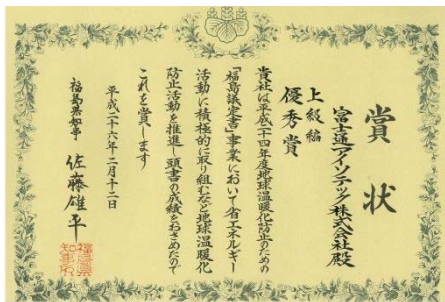 賞状
富士通アイソニック株式会社殿
上級編
優秀賞
貴社は平成二十四年度地球温暖化防止のための
「福島議定書」事業において省エネルギー
活動に積極的に取り組むなど地球温暖化
防止活動を推進し頭書の成績をおさめたので
これを賞します
平成二十六年二月十二日
福島県知事 佐藤雄平
福島県知事之印